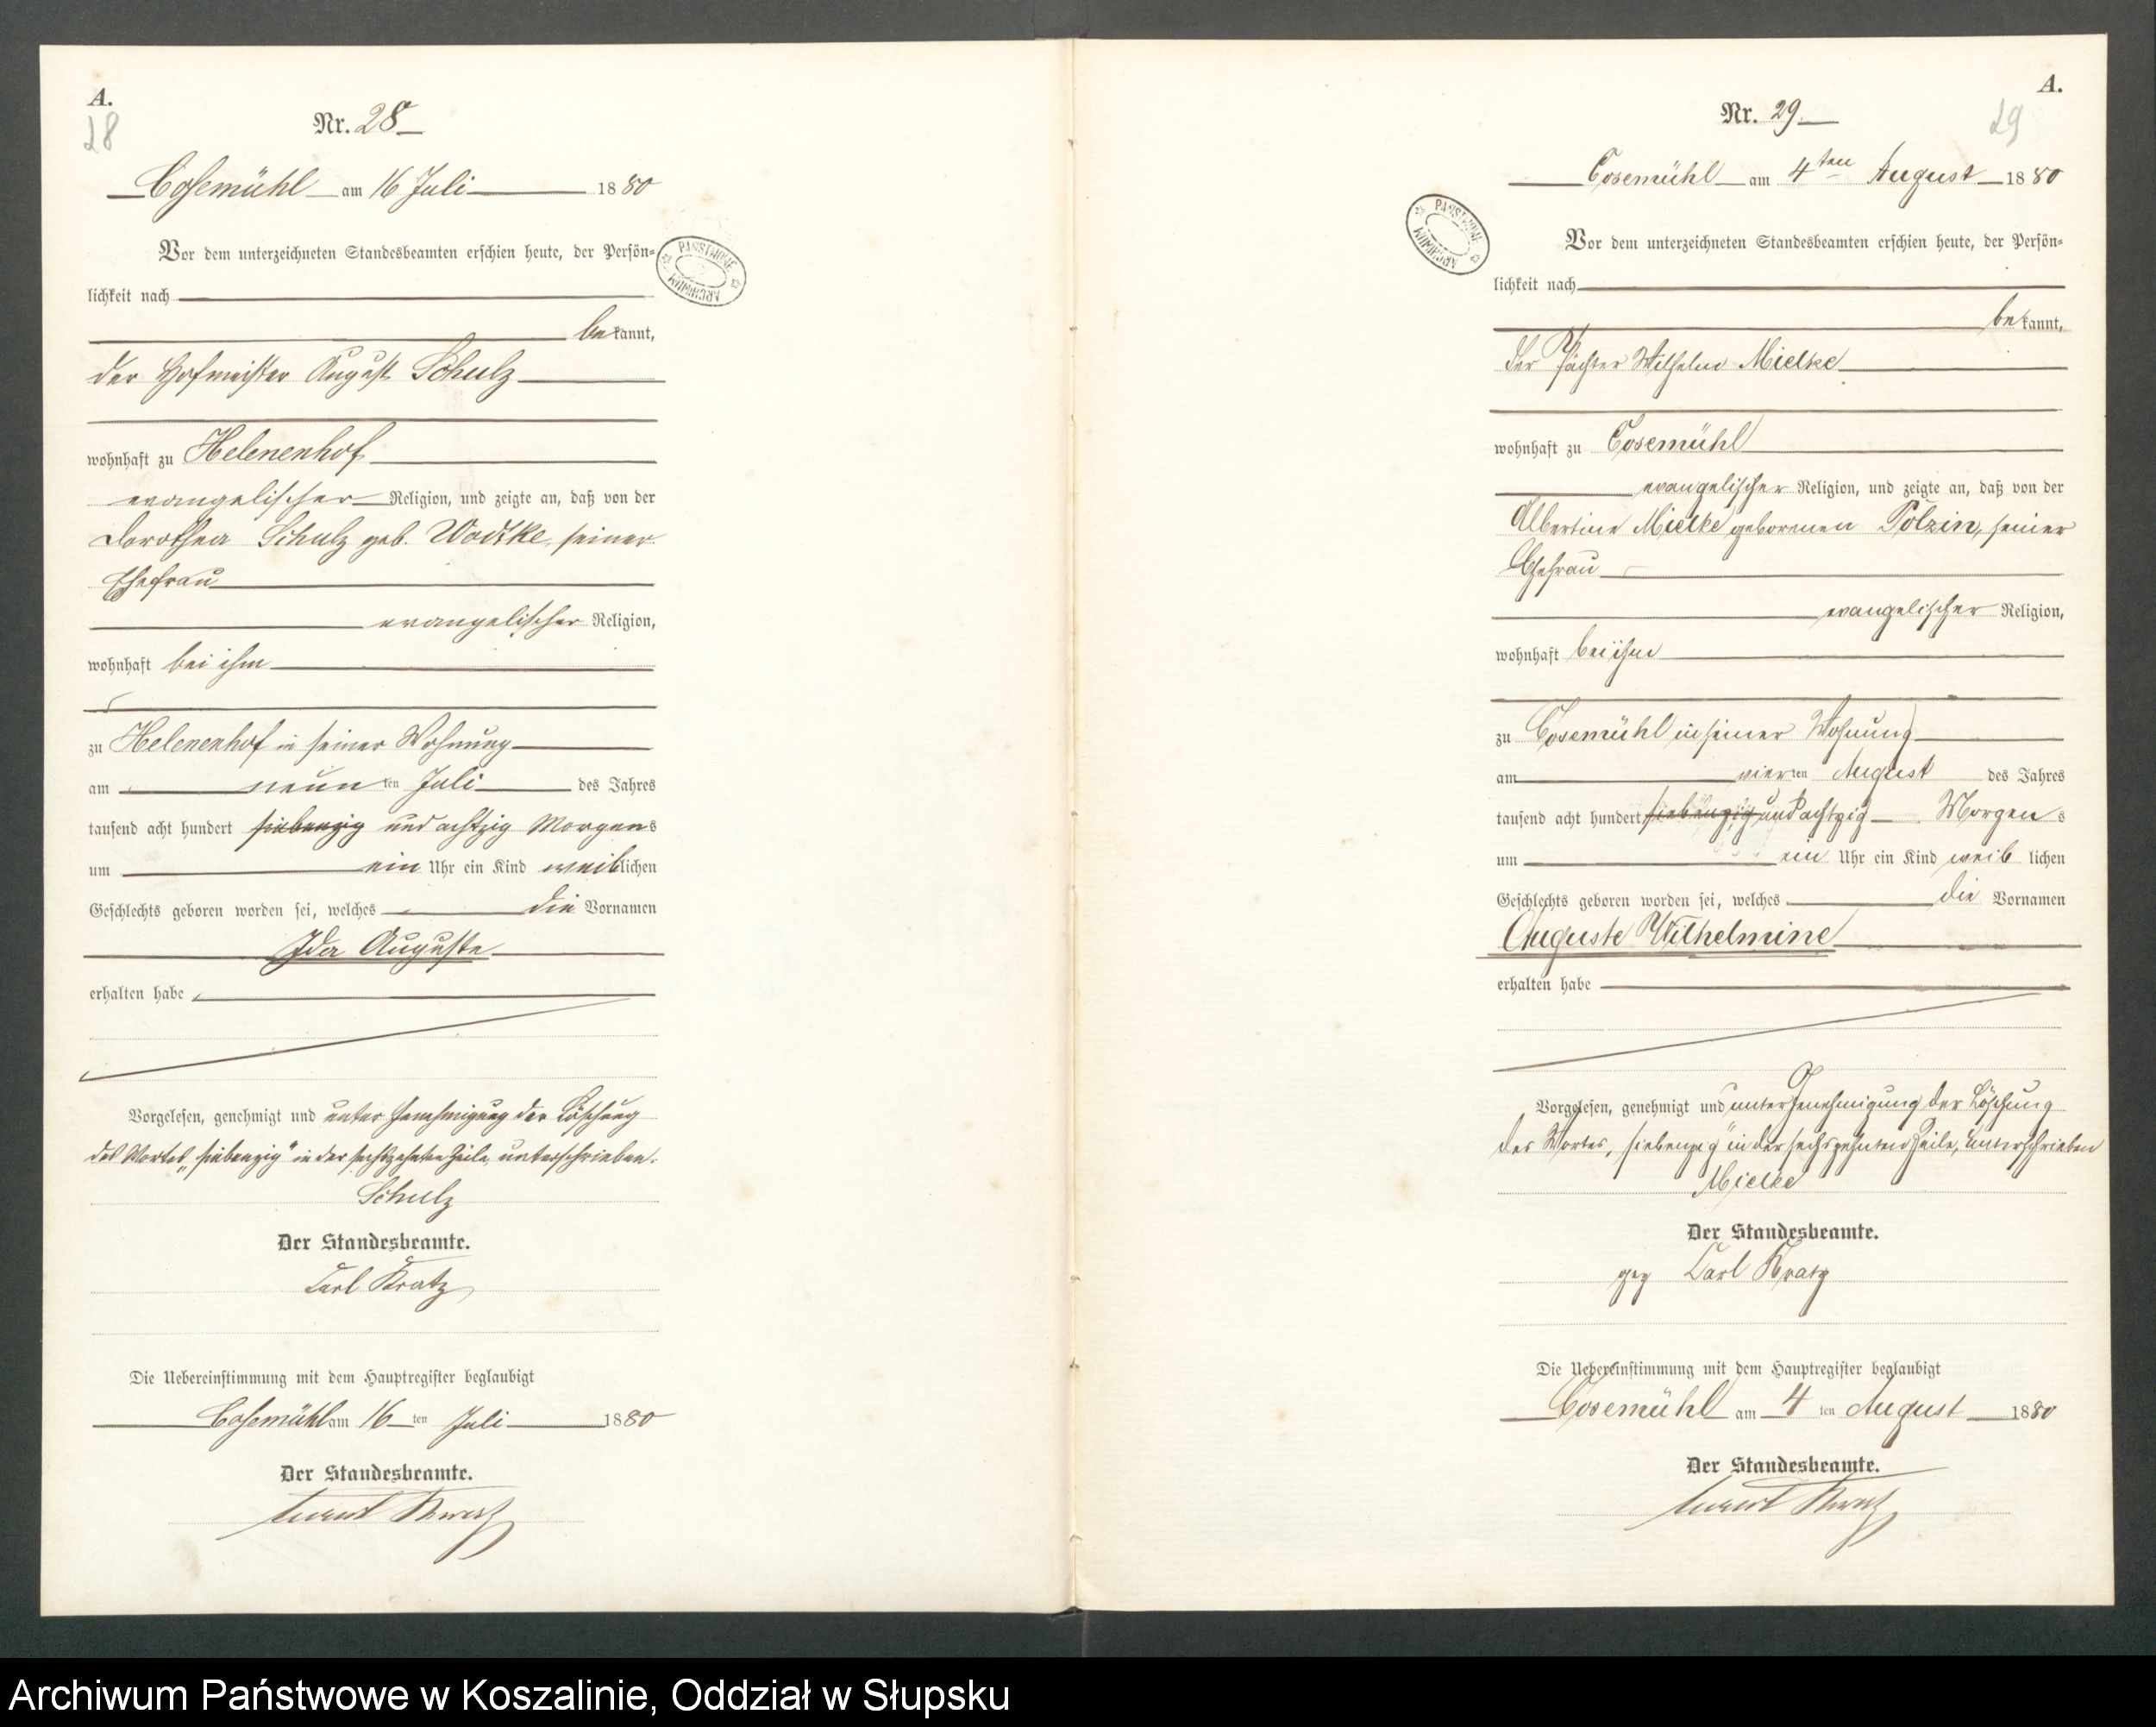 A.
28
Nr. 28
Cosemühl am 16 Juli 1880
Vor dem unterzeichneten Standesbeamten erschien heute, der Persön-
lichkeit nach
bekannt,
der Hofmeister August Schulz
wohnhaft zu Helenenhof
evangelischer Religion, und zeigte an, daß von der
Dorothea Schulz geb. Wodtke, seiner
Ehefrau
evangelischer Religion,
wohnhaft bei ihm
zu Helenenhof in seiner Wohnung
am neunten Juli des Jahres
tausend acht hundert siebenzig und achtzig Morgens
um ein Uhr ein Kind weiblichen
Geschlechts geboren worden sei, welches die Vornamen
Ida Auguste
erhalten habe
Vorgelesen, genehmigt und unter Genehmigung der Löschung
des Wortes „siebenzig" in der sechszehnten Zeile, unterschrieben.
Schulz
Der Standesbeamte.
Carl Kratz
Die Uebereinstimmung mit dem Hauptregister beglaubigt
Cosemühl am 16ten Juli 1880
Der Standesbeamte.
Kratz
PAŃSTWOWE ARCHIWUM
A.
29
Nr. 29.
Cosemühl am 4ten August 1880
Vor dem unterzeichneten Standesbeamten erschien heute, der Persön-
lichkeit nach
bekannt,
der Pächter Wilhelm Mielke
wohnhaft zu Cosemühl
evangelischer Religion, und zeigte an, daß von der
Albertine Mielke geborenen Polzin, seiner
Ehefrau
evangelischer Religion,
wohnhaft bei ihm
zu Cosemühl in seiner Wohnung
am vierten August des Jahres
tausend acht hundert siebenzig und achtzig Morgens
um ein Uhr ein Kind weiblichen
Geschlechts geboren worden sei, welches die Vornamen
Auguste Wilhelmine
erhalten habe
Vorgelesen, genehmigt und unter Genehmigung der Löschung
des Wortes, siebenzig" in der sechszehnten Zeile, unterschrieben
Mielke
Der Standesbeamte.
gez Carl Kratz
Die Uebereinstimmung mit dem Hauptregister beglaubigt
Cosemühl am 4ten August 1880
Der Standesbeamte.
Kratz
PAŃSTWOWE ARCHIWUM
Archiwum Państwowe w Koszalinie, Oddział w Słupsku